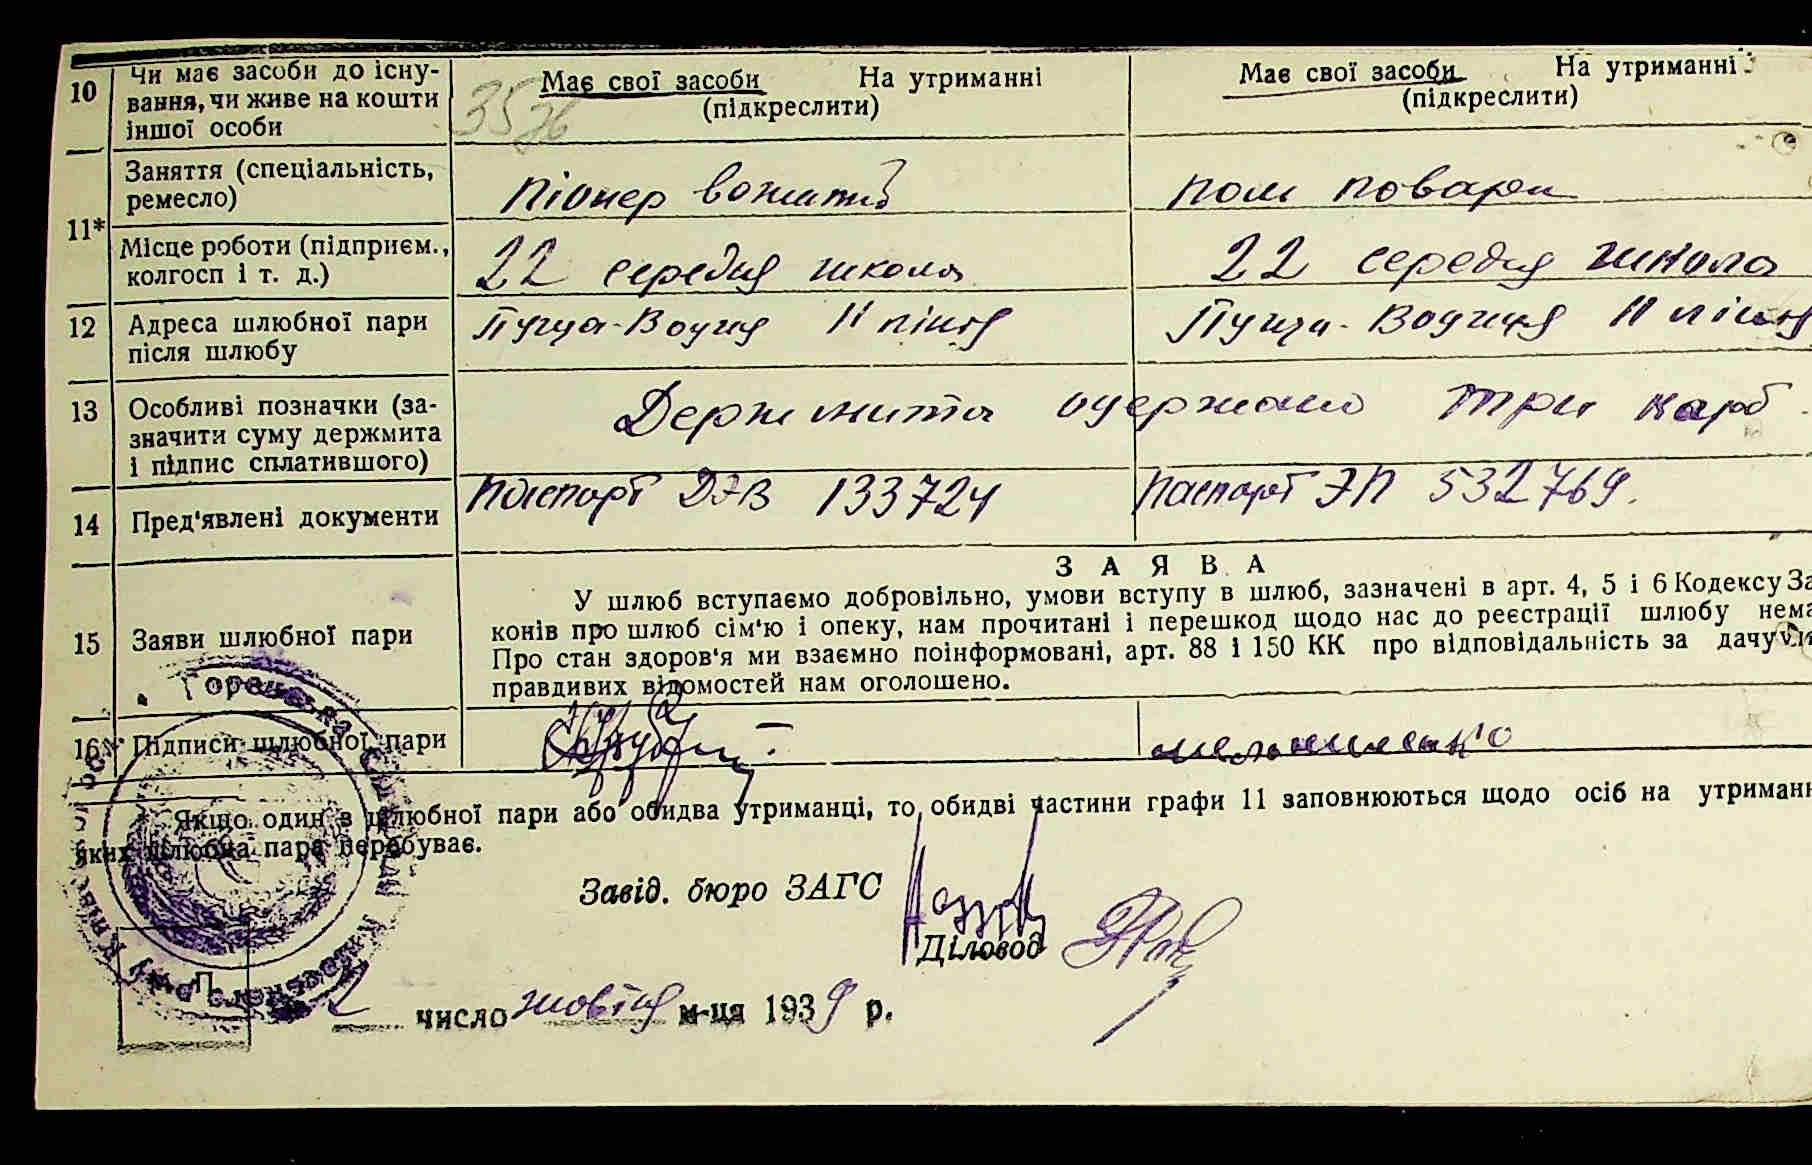 10 Чи має засоби до існу- Має свої засоби На утриманні Має свої засоби На утриманні
вання, чи живе на кошти (підкреслити) (підкреслити)
іншої особи
Заняття (спеціальність, піонер вожатий пом повара
ремесло)
11*
Місце роботи (підприєм., 22 середня школа 22 середня школа
колгосп і т. д.)
12 Адреса шлюбної пари Пуща-Водиця 11 лінія Пуща-Водиця 11 лінія
після шлюбу
13 Особливі позначки (за- Держмита одержано три карб.
значити суму держмита
і підпис сплатившого)
14 Пред'явлені документи паспорт ДЭВ 133724 паспорт ЭП 532769.
ЗАЯВА
15 Заяви шлюбної пари У шлюб вступаємо добровільно, умови вступу в шлюб, зазначені в арт. 4, 5 і 6 Кодексу За
конів про шлюб сім'ю і опеку, нам прочитані і перешкод щодо нас до реєстрації шлюбу нема
Про стан здоров'я ми взаємно поінформовані, арт. 88 і 150 КК про відповідальність за дачу
правдивих відомостей нам оголошено.
16 Підписи шлюбної пари
* Якщо один з шлюбної пари або обидва утриманці, то обидві частини графи 11 заповнюються щодо осіб на утриманн
яких шлюбна пара перебуває.
Завід. бюро ЗАГС
Діловод
2 число жовтня м-ця 1939 р.